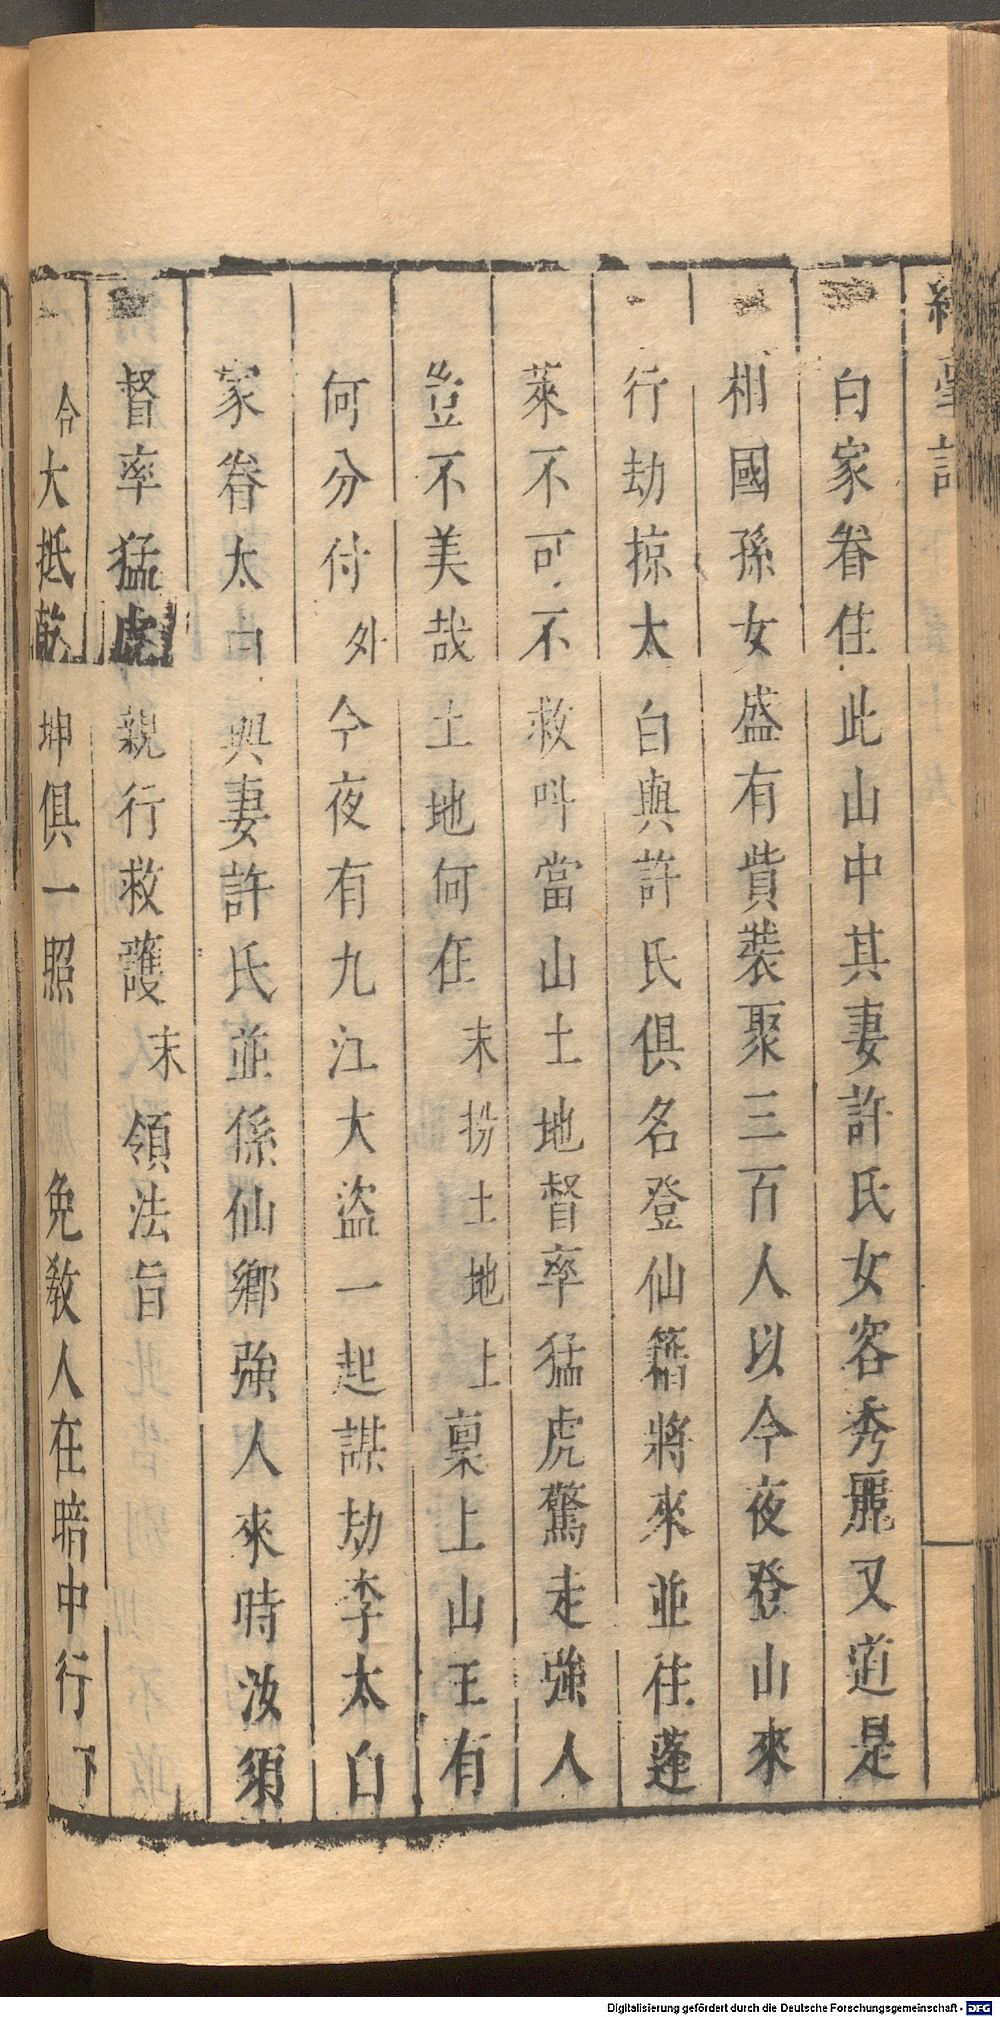 白家眷住此山中其妻許氏女容秀麗又道是
相國孫女盛有貲裝聚三百人以今夜登山來
行劫掠太白與許氏俱名登仙籍將來並住蓬
萊不可不救呌當山土地督率猛虎驚走強人
豈不美哉土地何在末扮土地上稟上山王有
何分付外今夜有九江大盜一起謀劫李太白
家眷太白與妻許氏並係仙鄉強人來時汝須
督率猛虎親行救護末領法旨
合大抵乾坤俱一照免敎人在暗中行下
Digitalisierung gefördert durch die Deutsche Forschungsgemeinschaft - DFG